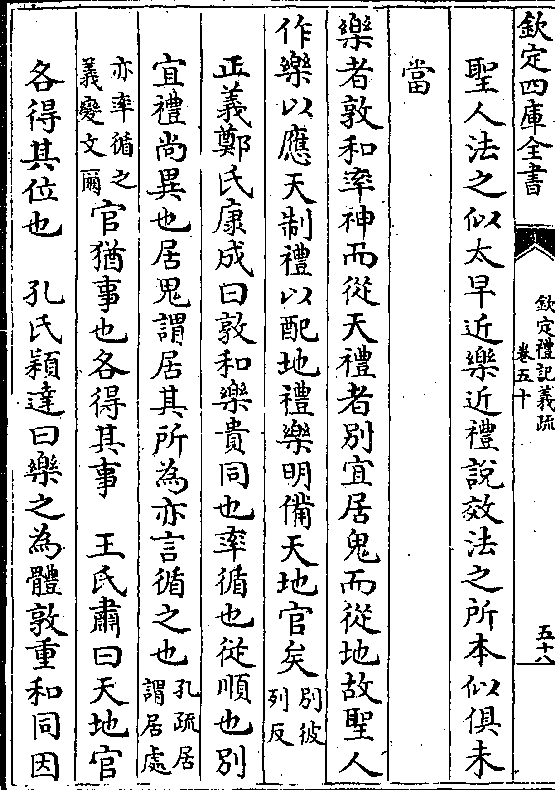 欽定四庫全書
欽定禮記義疏
卷五十
五十八
聖人法之似太早近樂近禮說效法之所本似俱未
當
樂者敦和率神而從天禮者別宜居鬼而從地故聖人
作樂以應天制禮以配地禮樂明備天地官矣別彼
列反
正義鄭氏康成曰敦和樂貴同也率循也從順也別
宜禮尚異也居鬼謂居其所為亦言循之也孔疏居
謂居處
亦率循之
義變文爾官猶事也各得其事　王氏肅曰天地官
各得其位也　孔氏穎達曰樂之為體敦重和同因